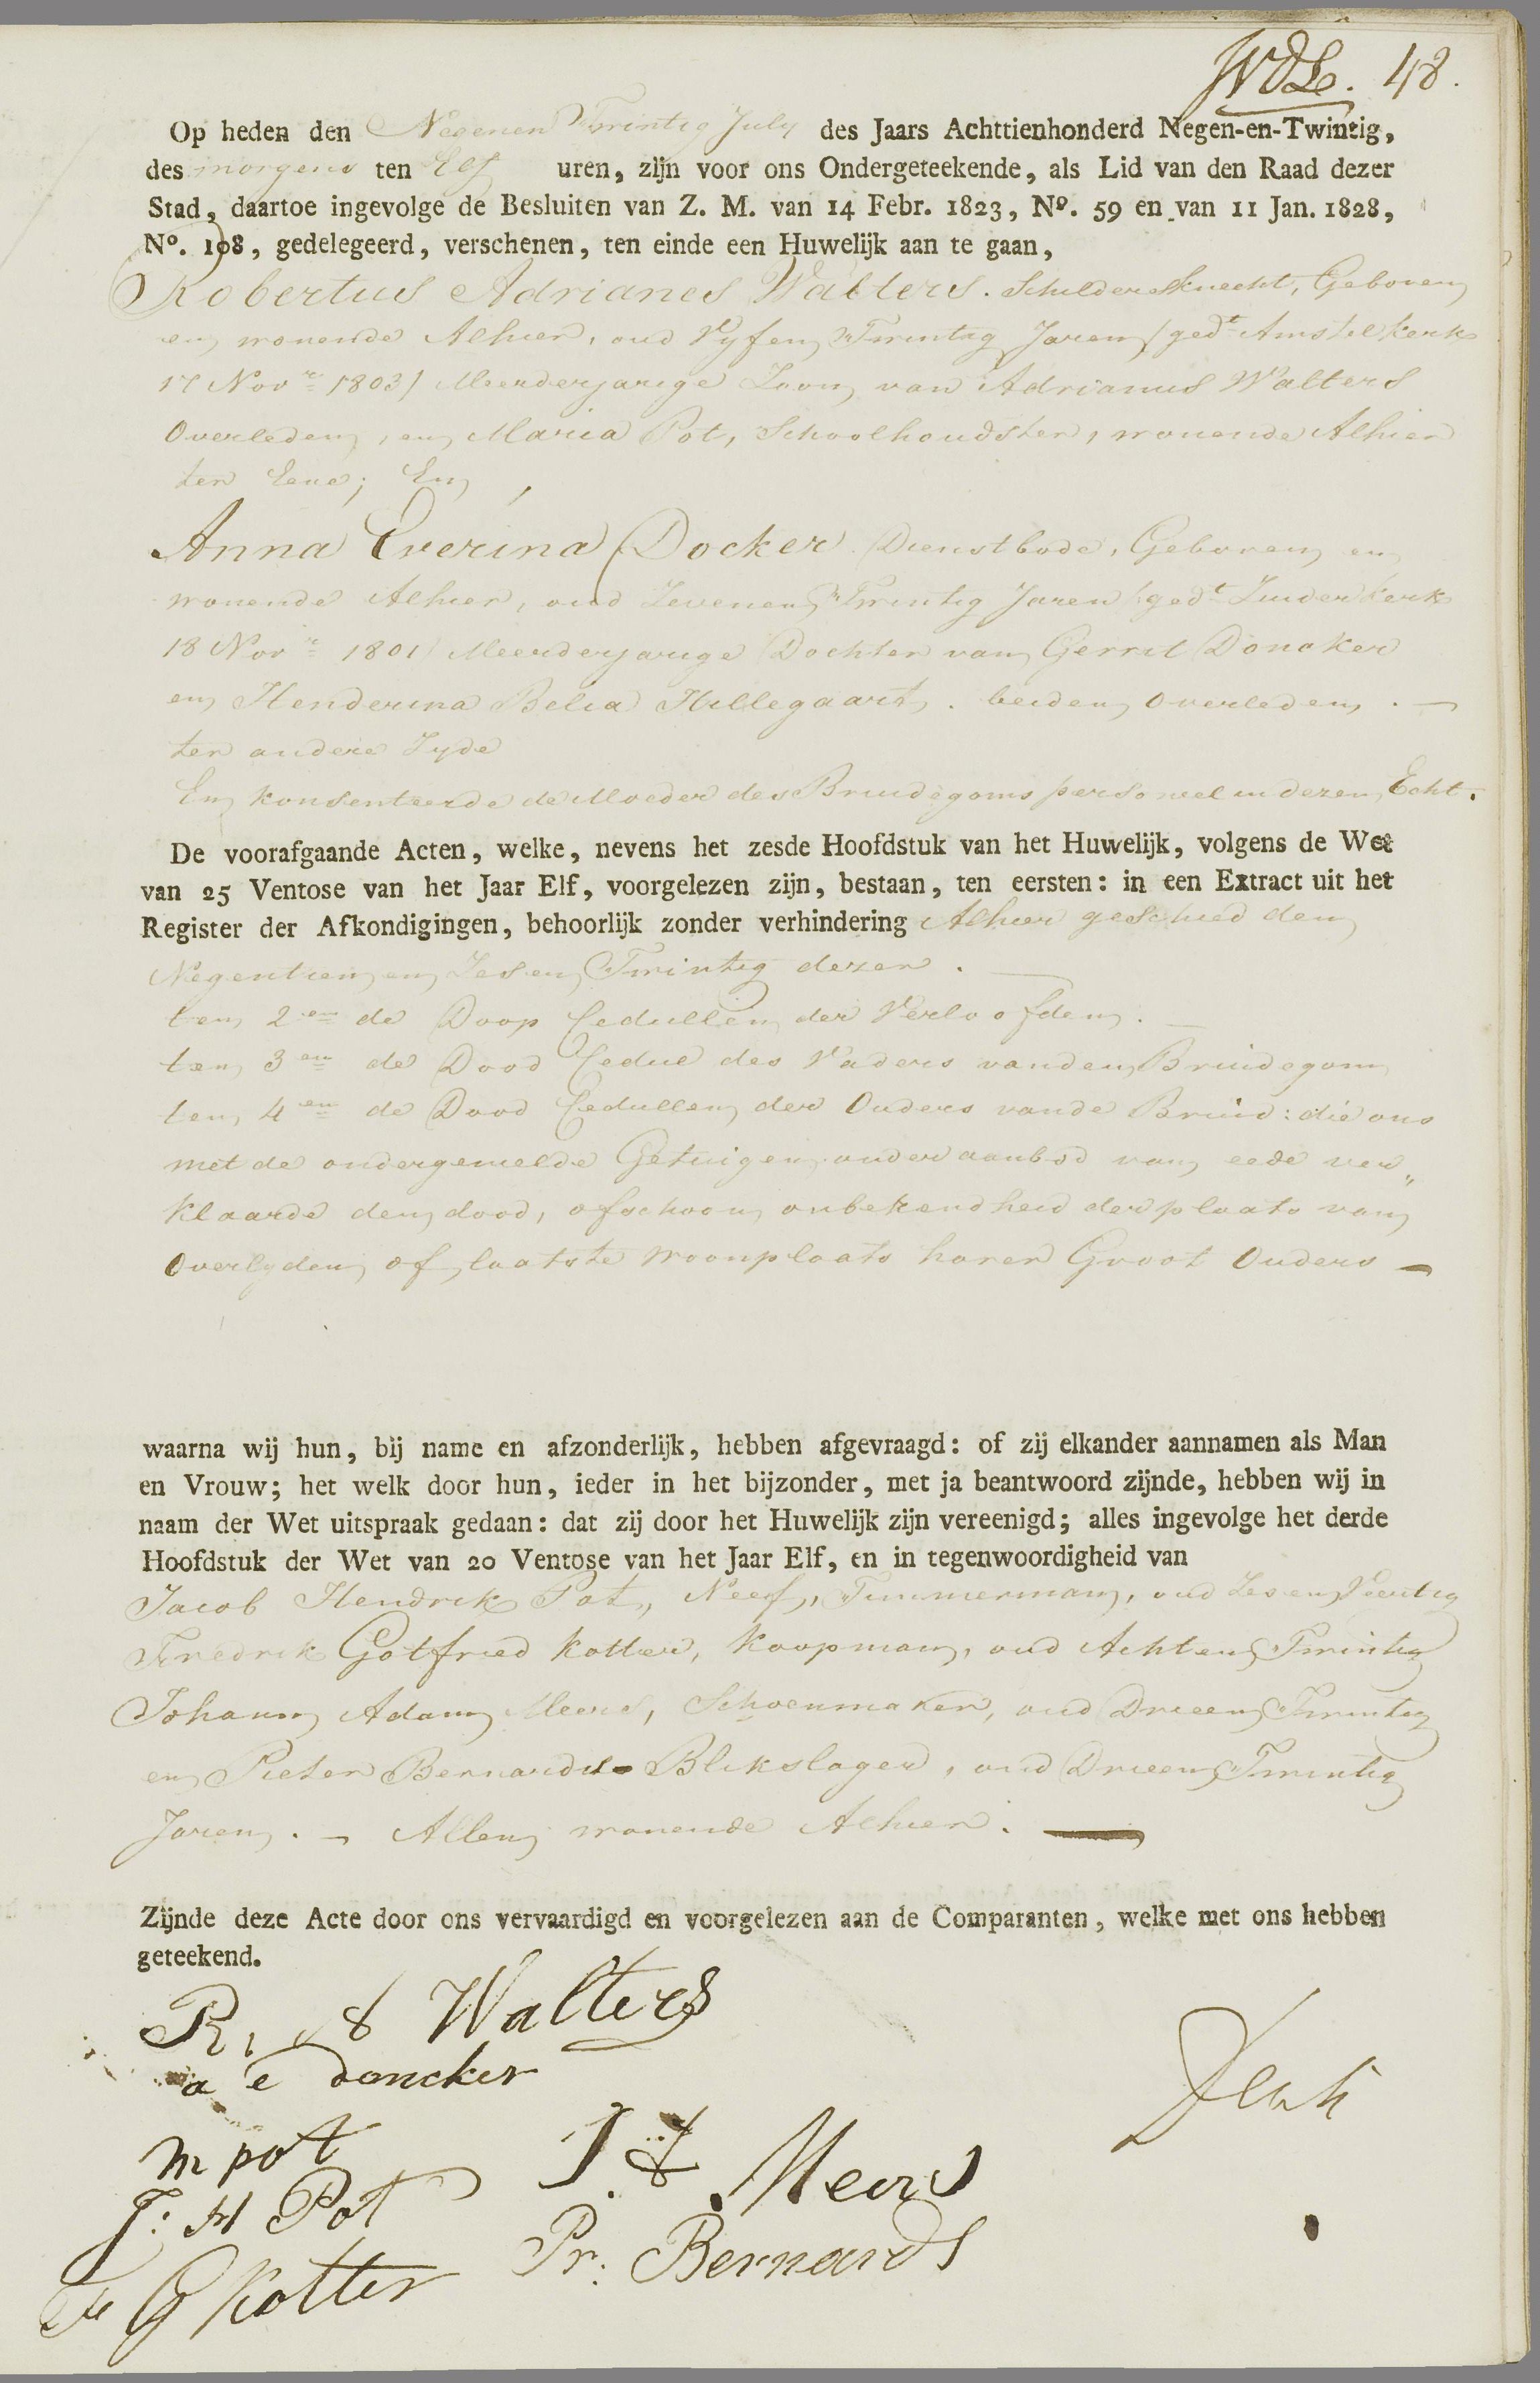 WDL. 48.
Op heden den Negenen Twintig July des Jaars Achttienhonderd Negen-en-Twintig,
des morgens ten Elf uren, zijn voor ons Ondergeteekende, als Lid van den Raad dezer
Stad, daartoe ingevolge de Besluiten van Z. M. van 14 Febr. 1823, No. 59 en van 11 Jan. 1828,
No. 108, gedelegeerd, verschenen, ten einde een Huwelijk aan te gaan,
Robertus Adrianes Walters. Schildersknecht, Geboren
en wonende Alhier, oud Vyfen Twintig Jaren /gedt Amstelkerk
17 Novr 1803/ Meerderjarige Zoon van Adrianus Walters
Overleden, en Maria Pot, Schoolhoudster, wonende Alhier
ter Eene; En
Anna Everina Docker Dienstbode, Geboren en
wonende Alhier, oud Zevenen Twintig Jaren /gedt Zuiderkerk
18 Novr 1801/ Meerderjarige Dochter van Gerrit Doncker
en Henderina Belia Hillegaart. beiden Overleden. —
ter andere Zyde
En konsenteerde de Moeder des Bruidegoms personeel in dezen Echt.
De voorafgaande Acten, welke, nevens het zesde Hoofdstuk van het Huwelijk, volgens de Wet
van 25 Ventose van het Jaar Elf, voorgelezen zijn, bestaan, ten eersten: in een Extract uit het
Register der Afkondigingen, behoorlijk zonder verhindering Alhier geschied den
Negentien en Zesen Twintig dezer. —
ten 2en de Doop Cedullen der Verloofden. —
ten 3en de Dood Cedul des Vaders vanden Bruidegom
ten 4en de Dood Cedullen der Ouders vande Bruid: die ons
met de ondergemelde Getuigen onder aanbod van eede ver„
klaarde den dood, ofschoon onbekendheid der plaats van
Overlyden of laatste woonplaats harer Groot Ouders —
waarna wij hun, bij name en afzonderlijk, hebben afgevraagd: of zij elkander aannamen als Man
en Vrouw; het welk door hun, ieder in het bijzonder, met ja beantwoord zijnde, hebben wij in
naam der Wet uitspraak gedaan: dat zij door het Huwelijk zijn vereenigd; alles ingevolge het derde
Hoofdstuk der Wet van 20 Ventose van het Jaar Elf, en in tegenwoordigheid van
Jacob Hendrik Pot, Neef, Timmerman, oud Zesen Veertig
Fredrik Gotfried Kotter, Koopman, oud Achten Twintig
Johann Adam Meers, Schoenmaker, oud Drieen Twintig
en Pieter Bernards Blikslager, oud Drieen Twintig
Jaren. — Allen wonende Alhier. —
Zijnde deze Acte door ons vervaardigd en voorgelezen aan de Comparanten, welke met ons hebben
geteekend.
R. A Walters
a e doncker
m pot
J: H Pot
Fe G Kotter
J A Meers
Pr. Bernards